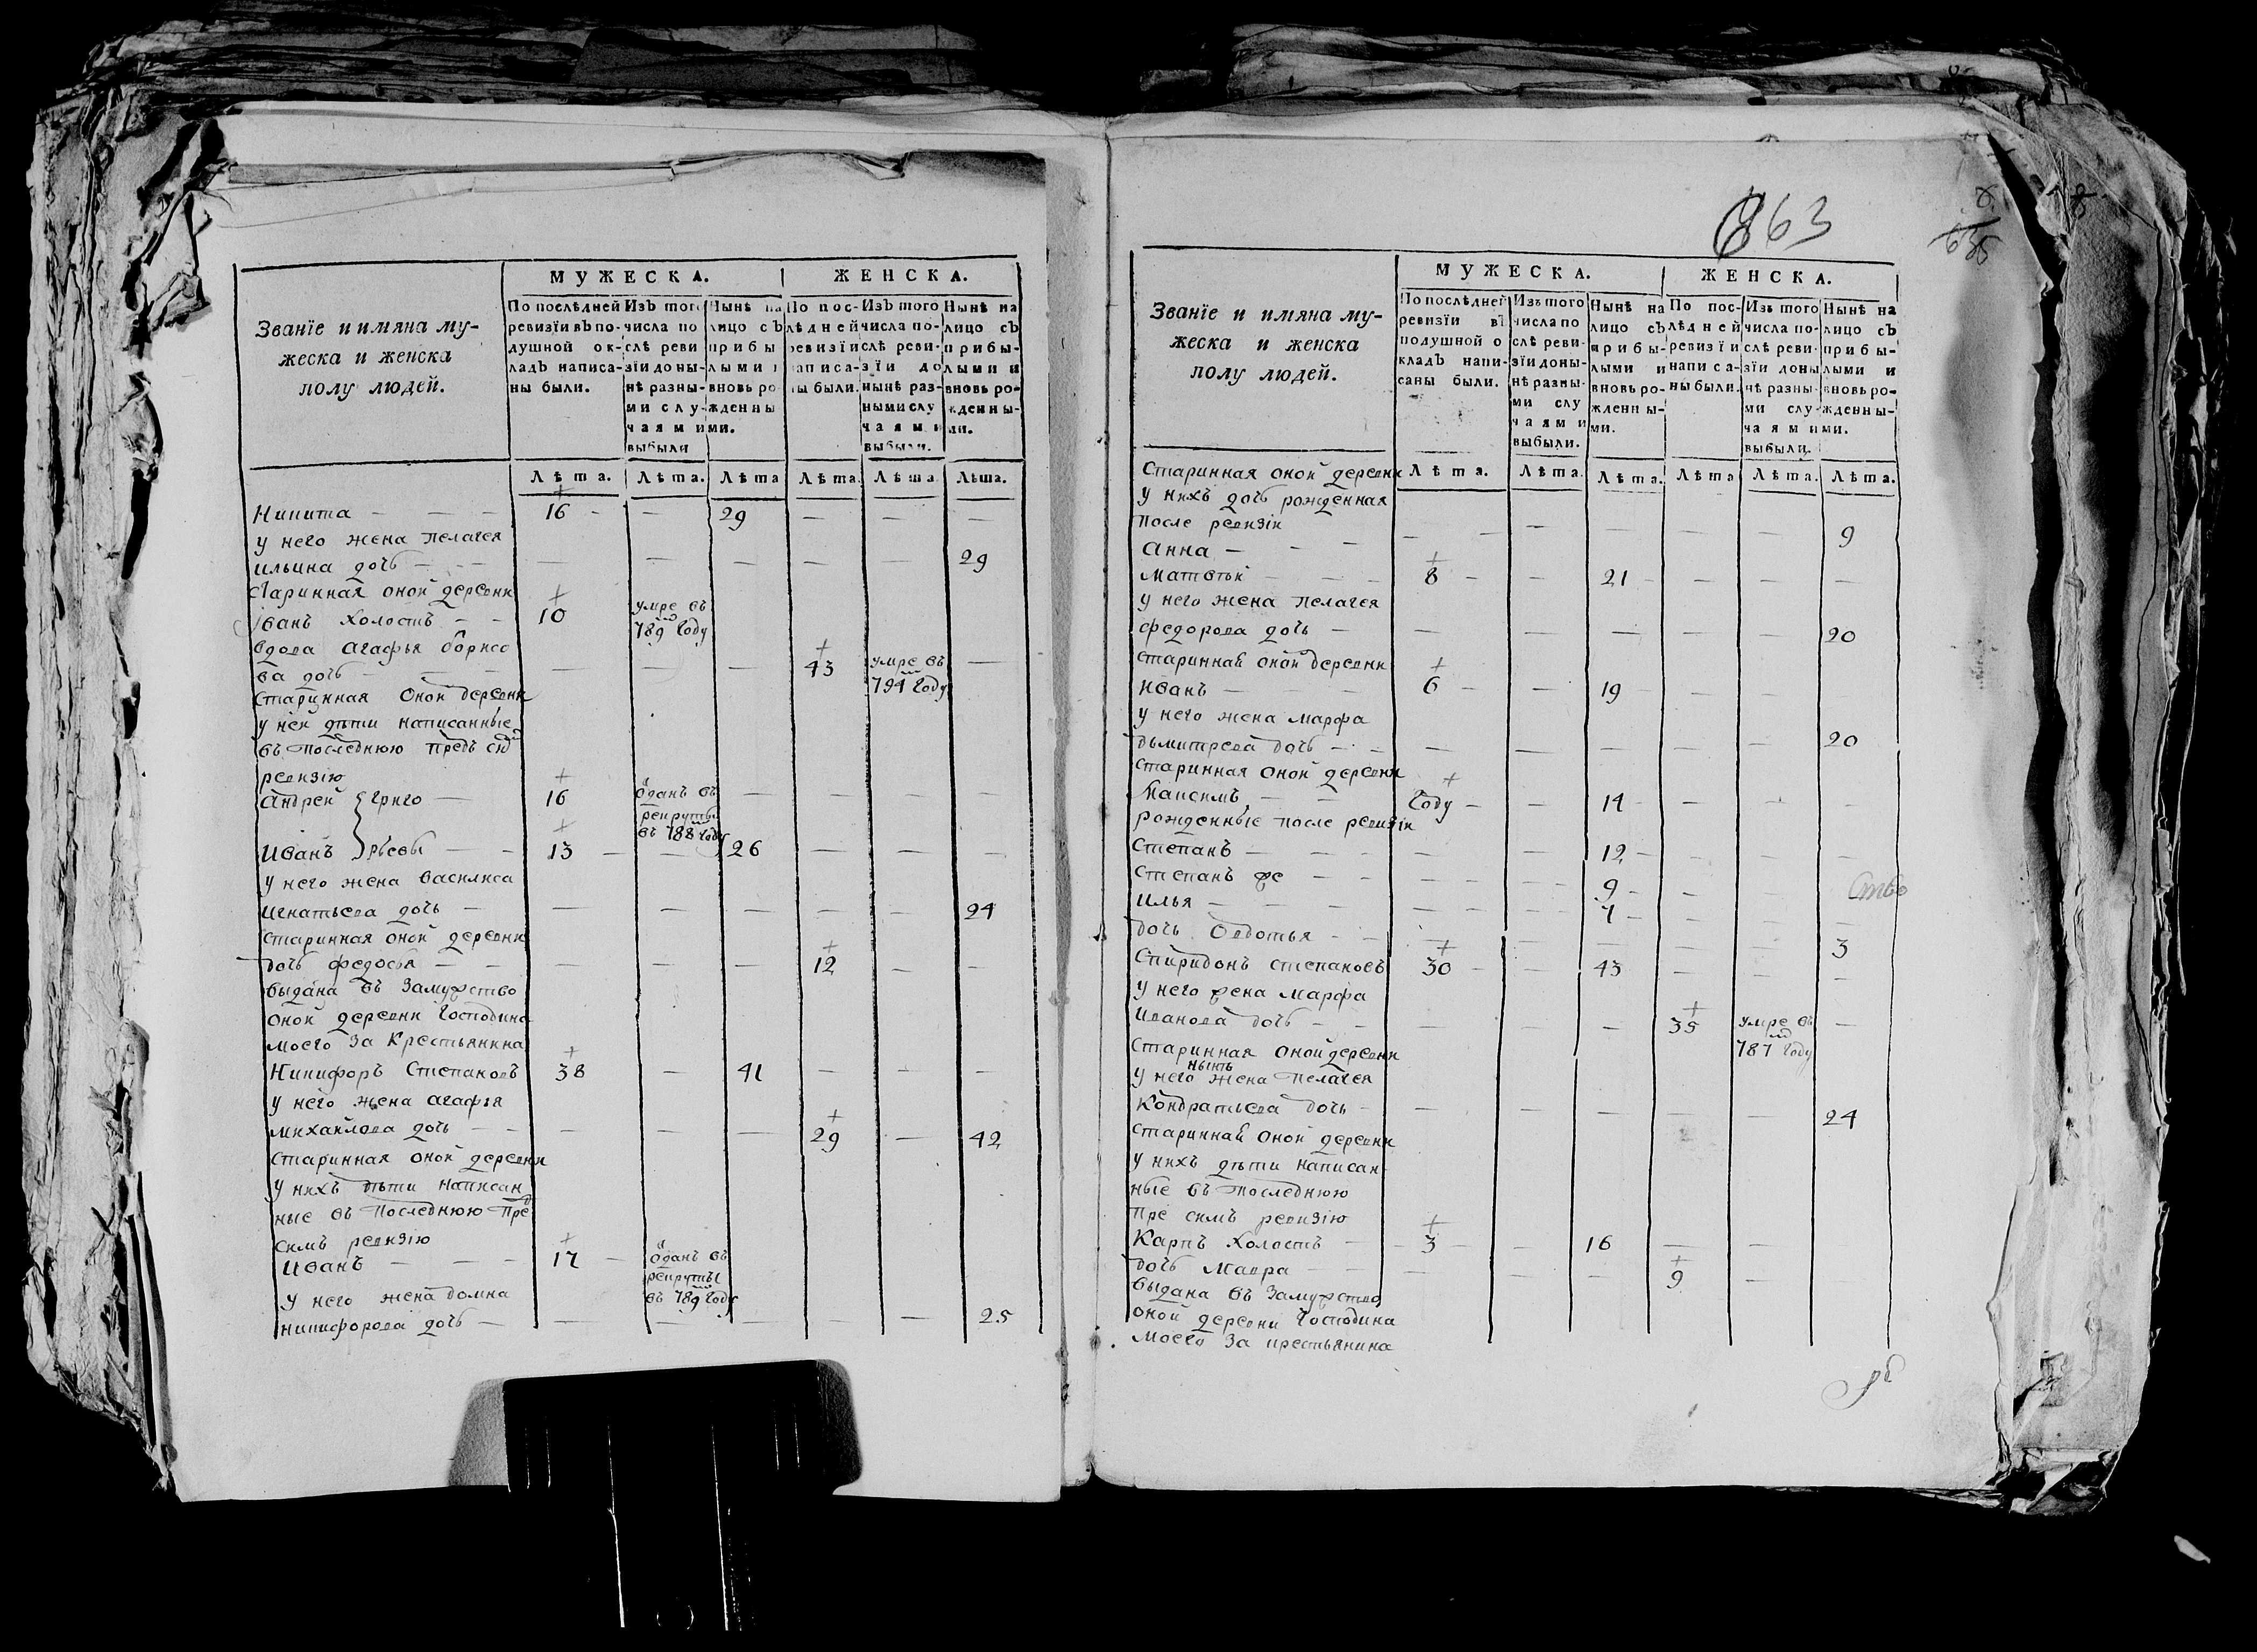 МУЖЕСКА. ЖЕНСКА.
Званїе и имяна му-
жеска и женска
полу людей.
По послѣдней ревизїи въ по- душной ок- ладъ написа- ны были.
Изъ того числа по слѣ реви зїи до ны- нѣ разны- ми слу- чаями выбыли
Нынѣ на лицо съ прибы лыми и вновь ро жденны ми.
По пос- лѣдней ревизїи написа- ны были.
Изъ того числа по- слѣ реви- зїи до нынѣ раз- ными слу чаями выбыли.
Нынѣ на лицо съ прибы- лыми и вновь ро- жденны- ми.
Лѣта. Лѣта. Лѣта Лѣта. Лѣта Лѣта.
Никита — — — + 16 — — 29 — — —
у него жена пелагея
ильина дочь — — — — — — — 29
старинная оной деревни
иванъ холостъ — — + 10 умре въ 789 м году
вдова агафья борисо
ва дочь — — — — + 43 умре въ 794 м году —
старинная оной деревни
у ней дѣти написанные
въ последнюю предъ сю
ревизїю
андрей { григо — + 16 ѿданъ въ рекруты въ 788 м году — — — —
иванъ } рьевы — — + 13 — — 26 — — —
у него жена василиса
игнатьева дочь — — — — — — 24
старинная оной деревни
дочь федосья — — — — — + 12 — —
выдана въ замужство
оной деревни господина
моего за крестьянина
Никифоръ степановъ + 38 — 41 — — —
у него жена агафья
михайлова дочь — — — — — + 29 — 42
старинная оной деревни
у нихъ дѣти написан
ные въ последнюю пред
симъ ревизїю
иванъ — — — + 17 — ѿданъ въ рекруты въ 789 м году
у него жена домна
никифорова дочь — — — — — — 25
863
635
МУЖЕСКА. ЖЕНСКА.
Званїе и имяна му-
жеска и женска
полу людей.
По послѣдней ревизїи въ подушной о кладъ напи- саны были.
Изъ того числа по слѣ реви- зїи до ны- нѣ разны- ми слу чаями выбыли.
Нынѣ на лицо съ прибы- лыми и вновь ро- жденны- ми.
По пос- лѣдней ревизїи написа- ны были.
Изъ того числа по- слѣ реви- зїи до ны нѣ разны- ми слу- чаями выбыли.
Нынѣ на лицо съ прибы- лыми и вновь ро- жденны- ми.
Лѣта. Лѣта. Лѣта. Лѣта Лѣта. Лѣта.
старинная оной деревни
у нихъ дочь рожденная
после ревизїи
анна — — — — — — — — — 9
матвѣй — — — + 8 — — 21 — — — —
у него жена пелагея
федорова дочь — — — — — — 20
старинная оной деревни
иванъ — — — + 6 — — 19 — — —
у него жена марфа
дьмитрева дочь — — — — — — — 20
старинная оной деревни
максимъ — — + году — — 14 — — — —
рожденные после ревизїи
степанъ — — — — — 12 — — — —
степанъ же — — — — — 9 — — —
илья — — — — — — 7 — — — —
дочь овдотья — — — — — — — 3
спиридонъ степановъ + 30 — — 43 — — —
у него жена марфа
иванова дочь — — — — — + 35 умре въ 787 м году —
старинная оной деревни
у него нынѣ жена пелагея
кондратьева дочь — — — — — — 24
старинная оной деревни
у нихъ дѣти написан-
ные въ последнюю
пре симъ ревизїю
карпъ холостъ — + 3 — — 16 — —
дочь мавра — — — — — + 9 —
выдана въ замужство
оной деревни господина
моего за крестьянина